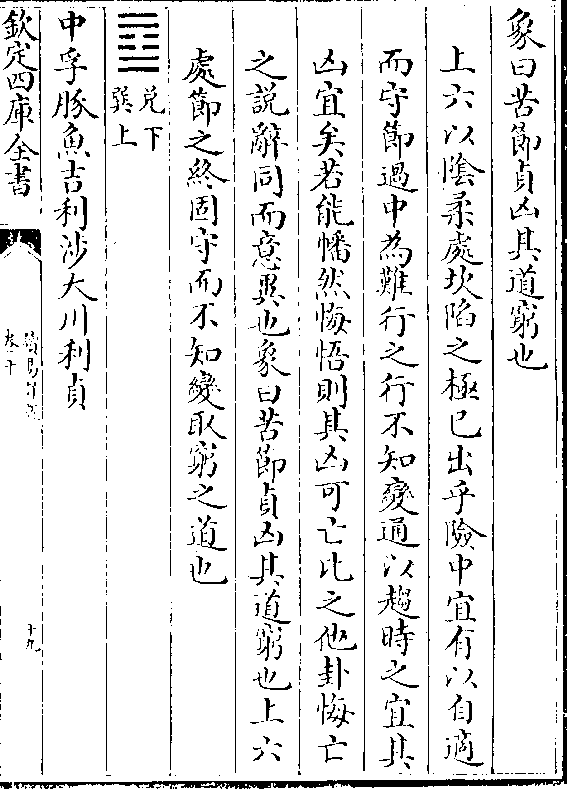 象曰苦節貞凶其道窮也
上六以陰柔處坎陷之極已出乎險中宜有以自適
而守節過中為難行之行不知變通以趨時之宜其
凶宜矣若能幡然悔悟則其凶可亡比之他卦悔亡
之說辭同而意異也象曰苦節貞凶其道窮也上六
處節之終固守而不知變取窮之道也
兌下
巽上
中孚豚魚吉利涉大川利貞
欽定四庫全書
卷十
十九